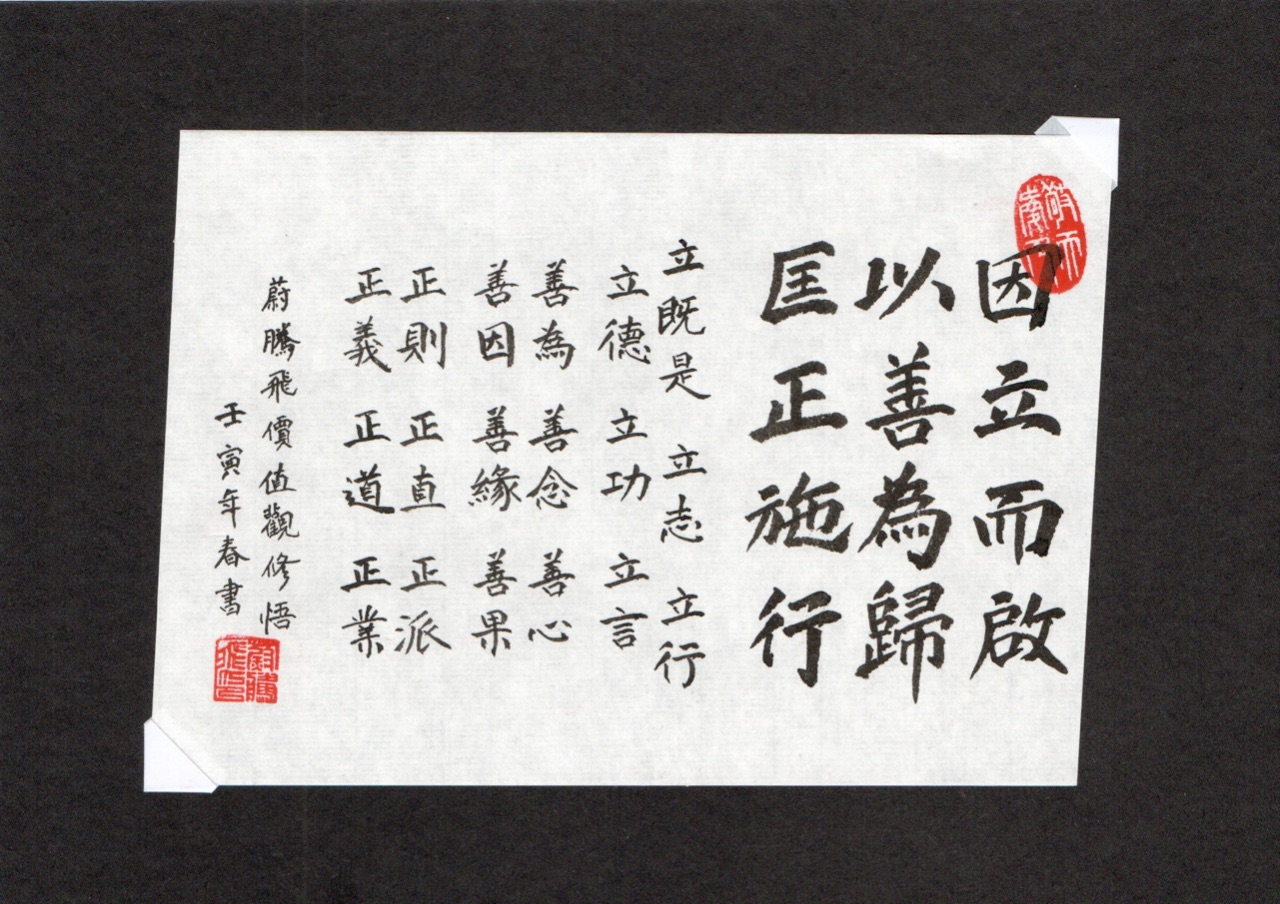 因立而啟
以善為歸
匡正施行
立既是 立志 立行
立德 立功 立言
善為 善念 善心
善因 善緣 善果
正則 正直 正派
正義 正道 正業
蔚騰飛價值觀修悟
壬寅年春書